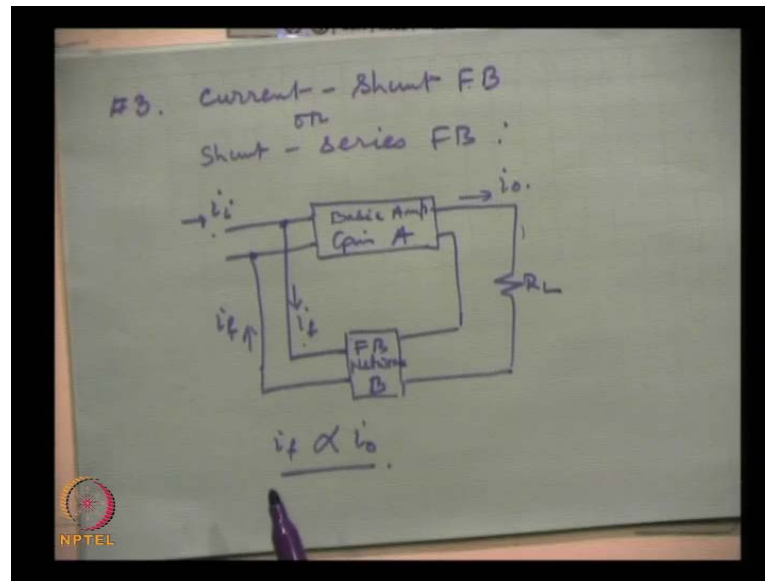 #3. Current - Shunt FB
or
Shunt - Series FB :
ii
io.
Basic Amp.
Gain A
RL
if
if
FB
Network
B
if ∝ io
NPTEL